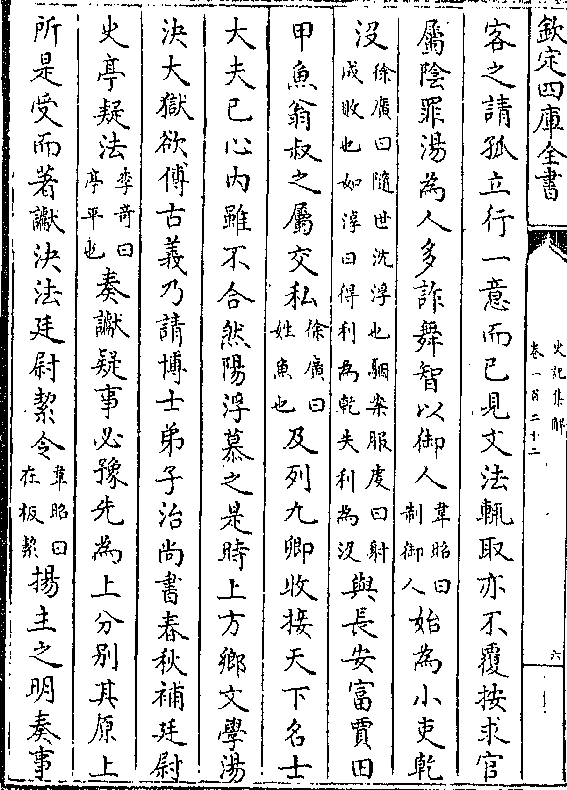 欽定四庫全書
史記集解
卷一百二十二
六
客之請孤立行一意而已見文法輒取亦不覆按求官
屬陰罪湯為人多詐舞智以御人韋昭曰制御人始為小吏乾
没徐廣曰隨世沈浮也駰案服虔曰射成敗也如淳曰得利為乾失利為没與長安富賈田
甲魚翁叔之屬交私徐廣曰姓魚也及列九卿收接天下名士
大夫已心内雖不合然陽浮慕之是時上方鄉文學湯
決大獄欲傅古義乃請博士弟子治尚書春秋補廷尉
史亭疑法李奇曰亭平也奏讞疑事必豫先為上分别其原上
所是受而著讞決法廷尉絜令韋昭曰在板絜揚主之明奏事